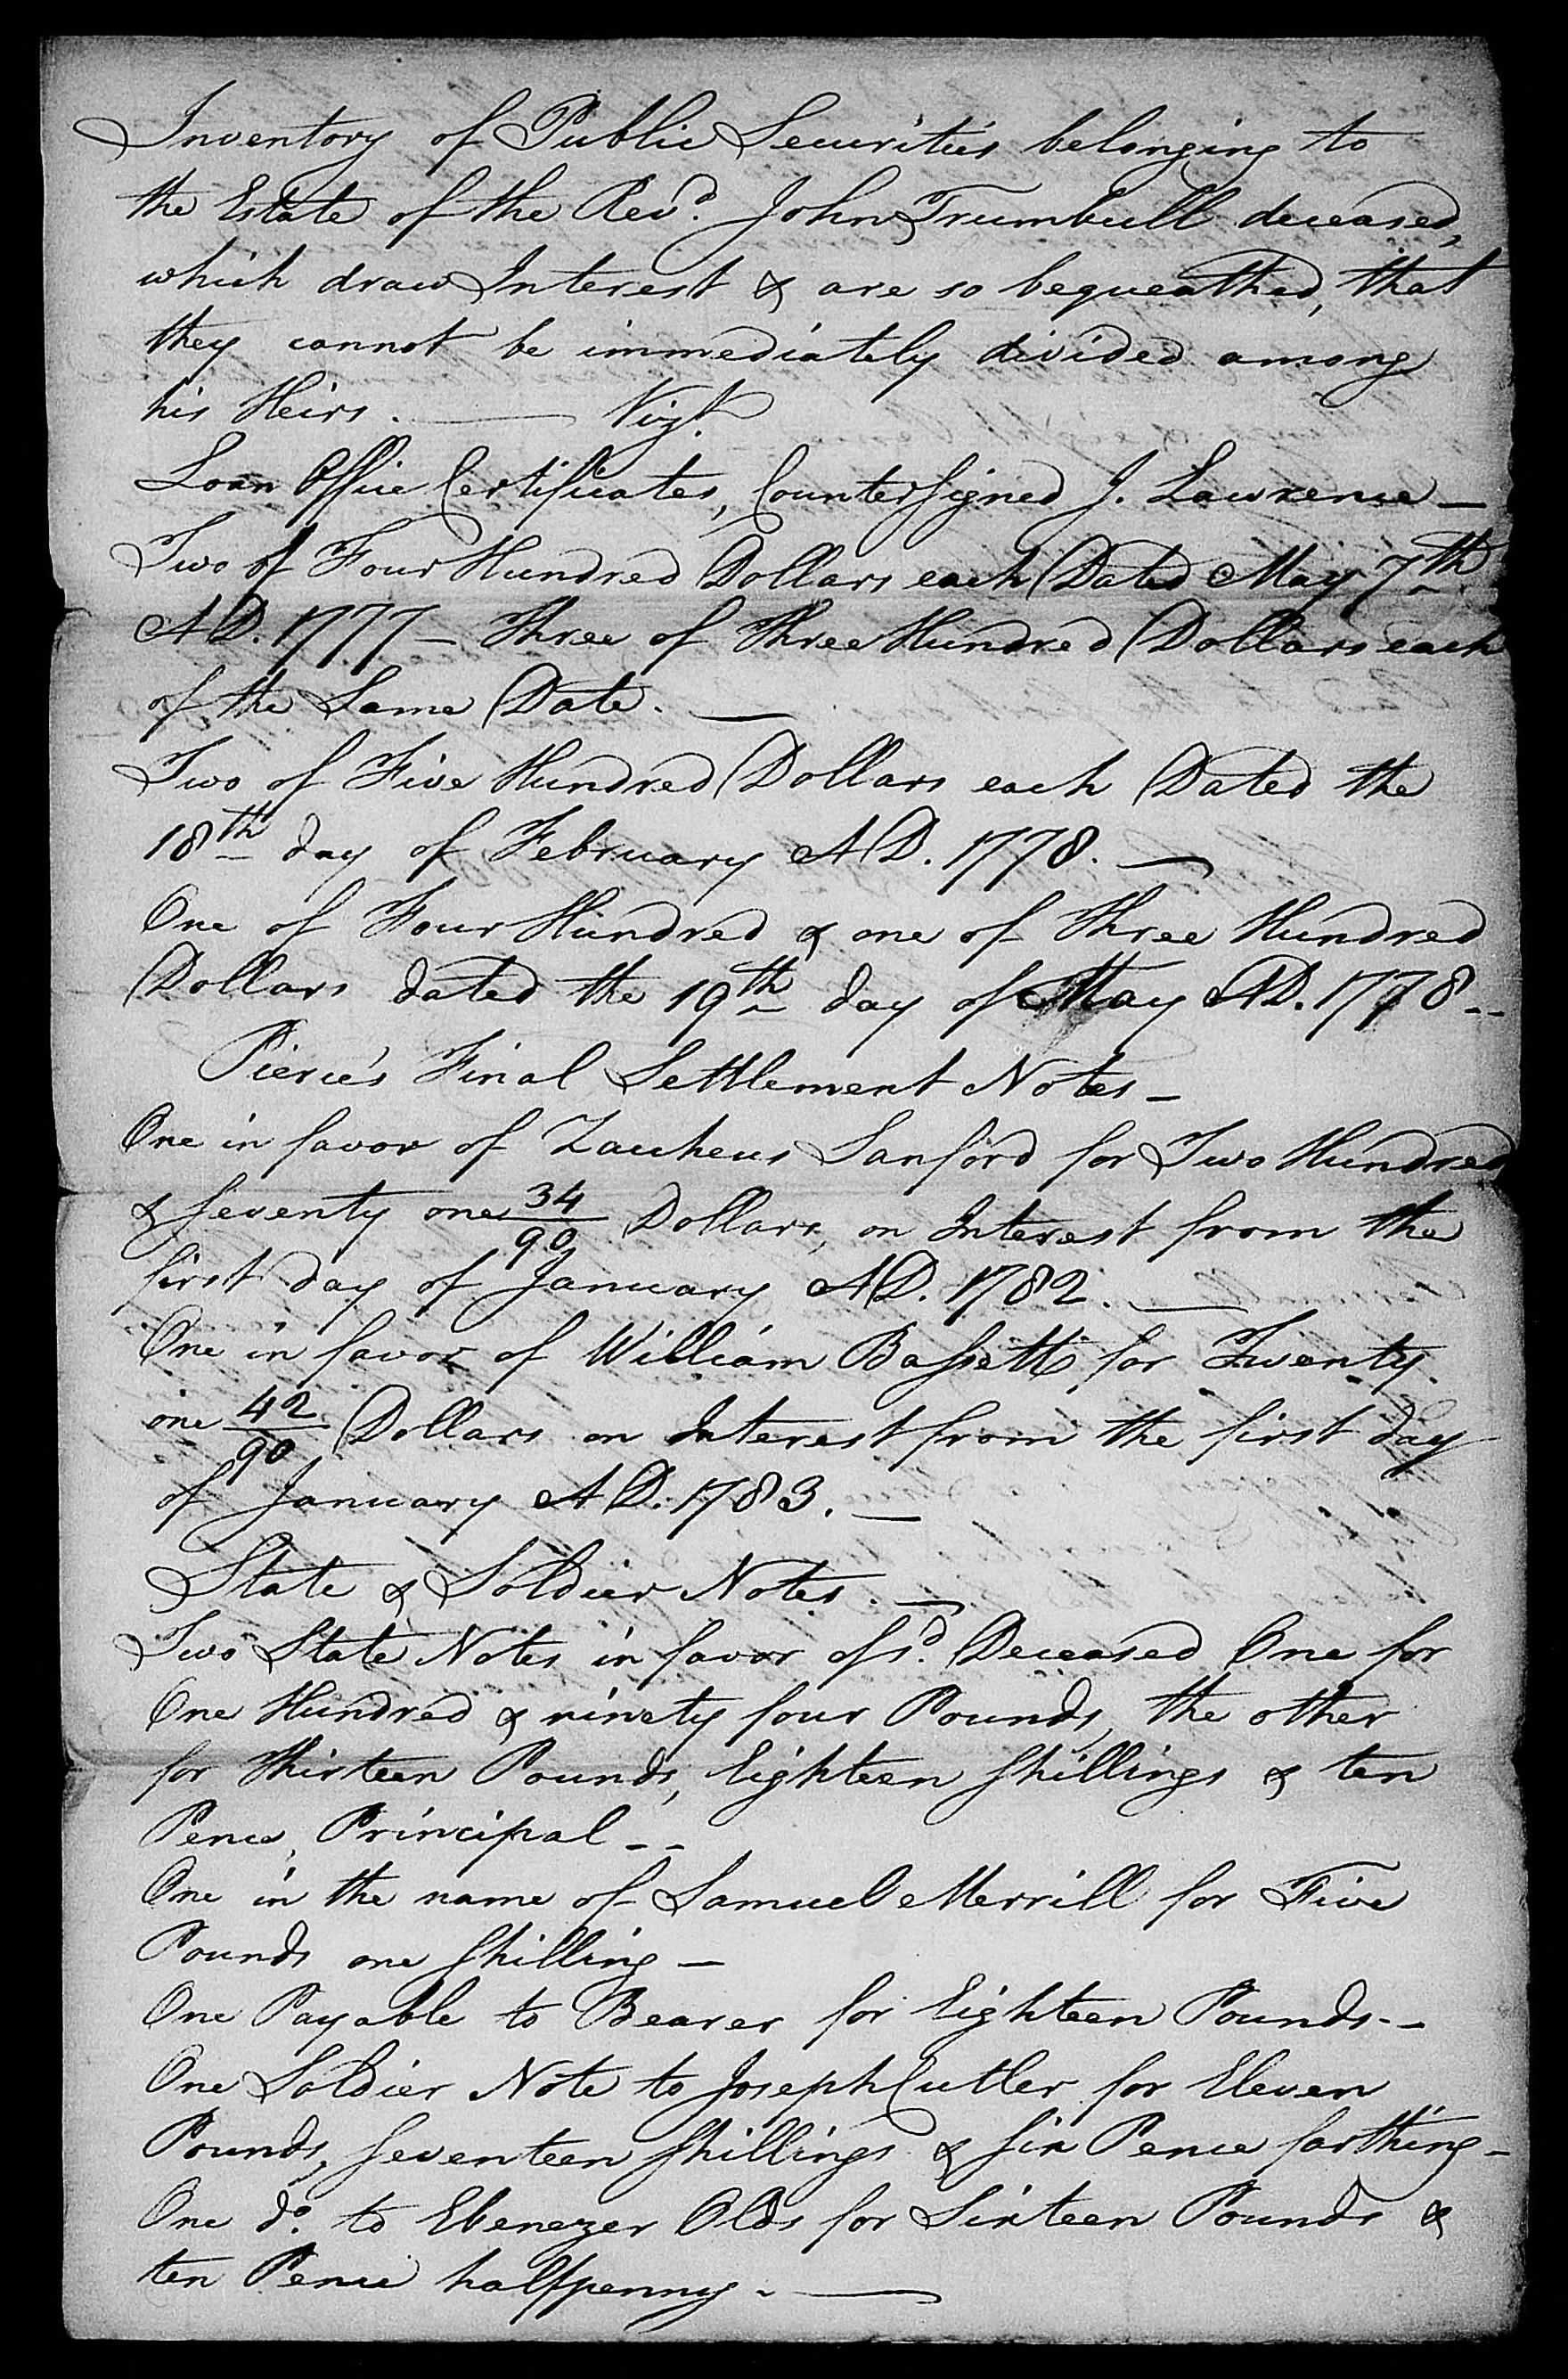 Inventory of Public Securities belonging to
the Estate of the Revd. John Trumbull deceased,
which draw Interest & are so bequeathed, that
they cannot be immediately divided among
his Heirs. — Vizt.
Loan Office Certificates, Countersigned J. Lawrence —
Two of Four Hundred Dollars each Dated May 7th
AD. 1777 — Three of Three Hundred Dollars each
of the Same Date. —
Two of Five Hundred Dollars each Dated the
18th day of February AD. 1778. —
One of Four Hundred & one of Three Hundred
Dollars dated the 19th day of May AD. 1778 --
Pierce's Final Settlement Notes —
One in favor of Zacheus Sanford for Two Hundred
& Seventy one 34/90 Dollars, on Interest from the
first day of January AD. 1782. —
One in favor of William Bassett, for Twenty
one 42/90 Dollars on Interest from the first day
of January AD. 1783. —
State & Soldier Notes. —
Two State Notes in favor of sd. Deceased One for
One Hundred & ninety four Pounds, the other
for thirteen Pounds, Eighteen Shillings & ten
Pence, Principal --
One in the name of Samuel Merrill for Five
Pounds one Shilling —
One Payable to Bearer for Eighteen Pounds --
One Soldier Note to Joseph Cutler for Eleven
Pounds, Seventeen Shillings & Six Pence farthing —
One do. to Ebenezer Olds for Sixteen Pounds &
ten Pence halfpenny. —